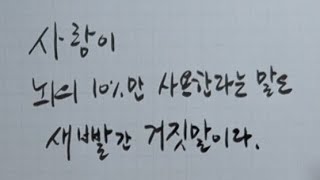 사람이
뇌의 10%만 사용한다는 말은
새빨간 거짓말이라.